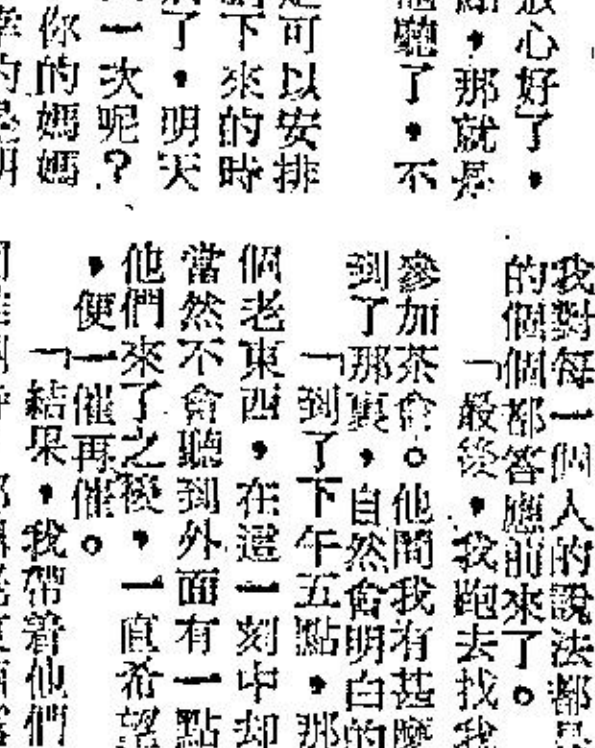 放心好了，
，那就是
聽了，不
可以安排
下來的時
了，明天
一次呢？
你的媽媽
我對每一個人的說法都是
的個個都答應前來了。
「最後，我跑去找我
參加茶會。他問我有甚麼
到了那裏，自然會明白的
「到了下午五點，那
個老東西，在這一刻中却
當然不會聽到外面有一點
他們來了之後，一直希望
，便一催再催。
「結果，我帶着他們